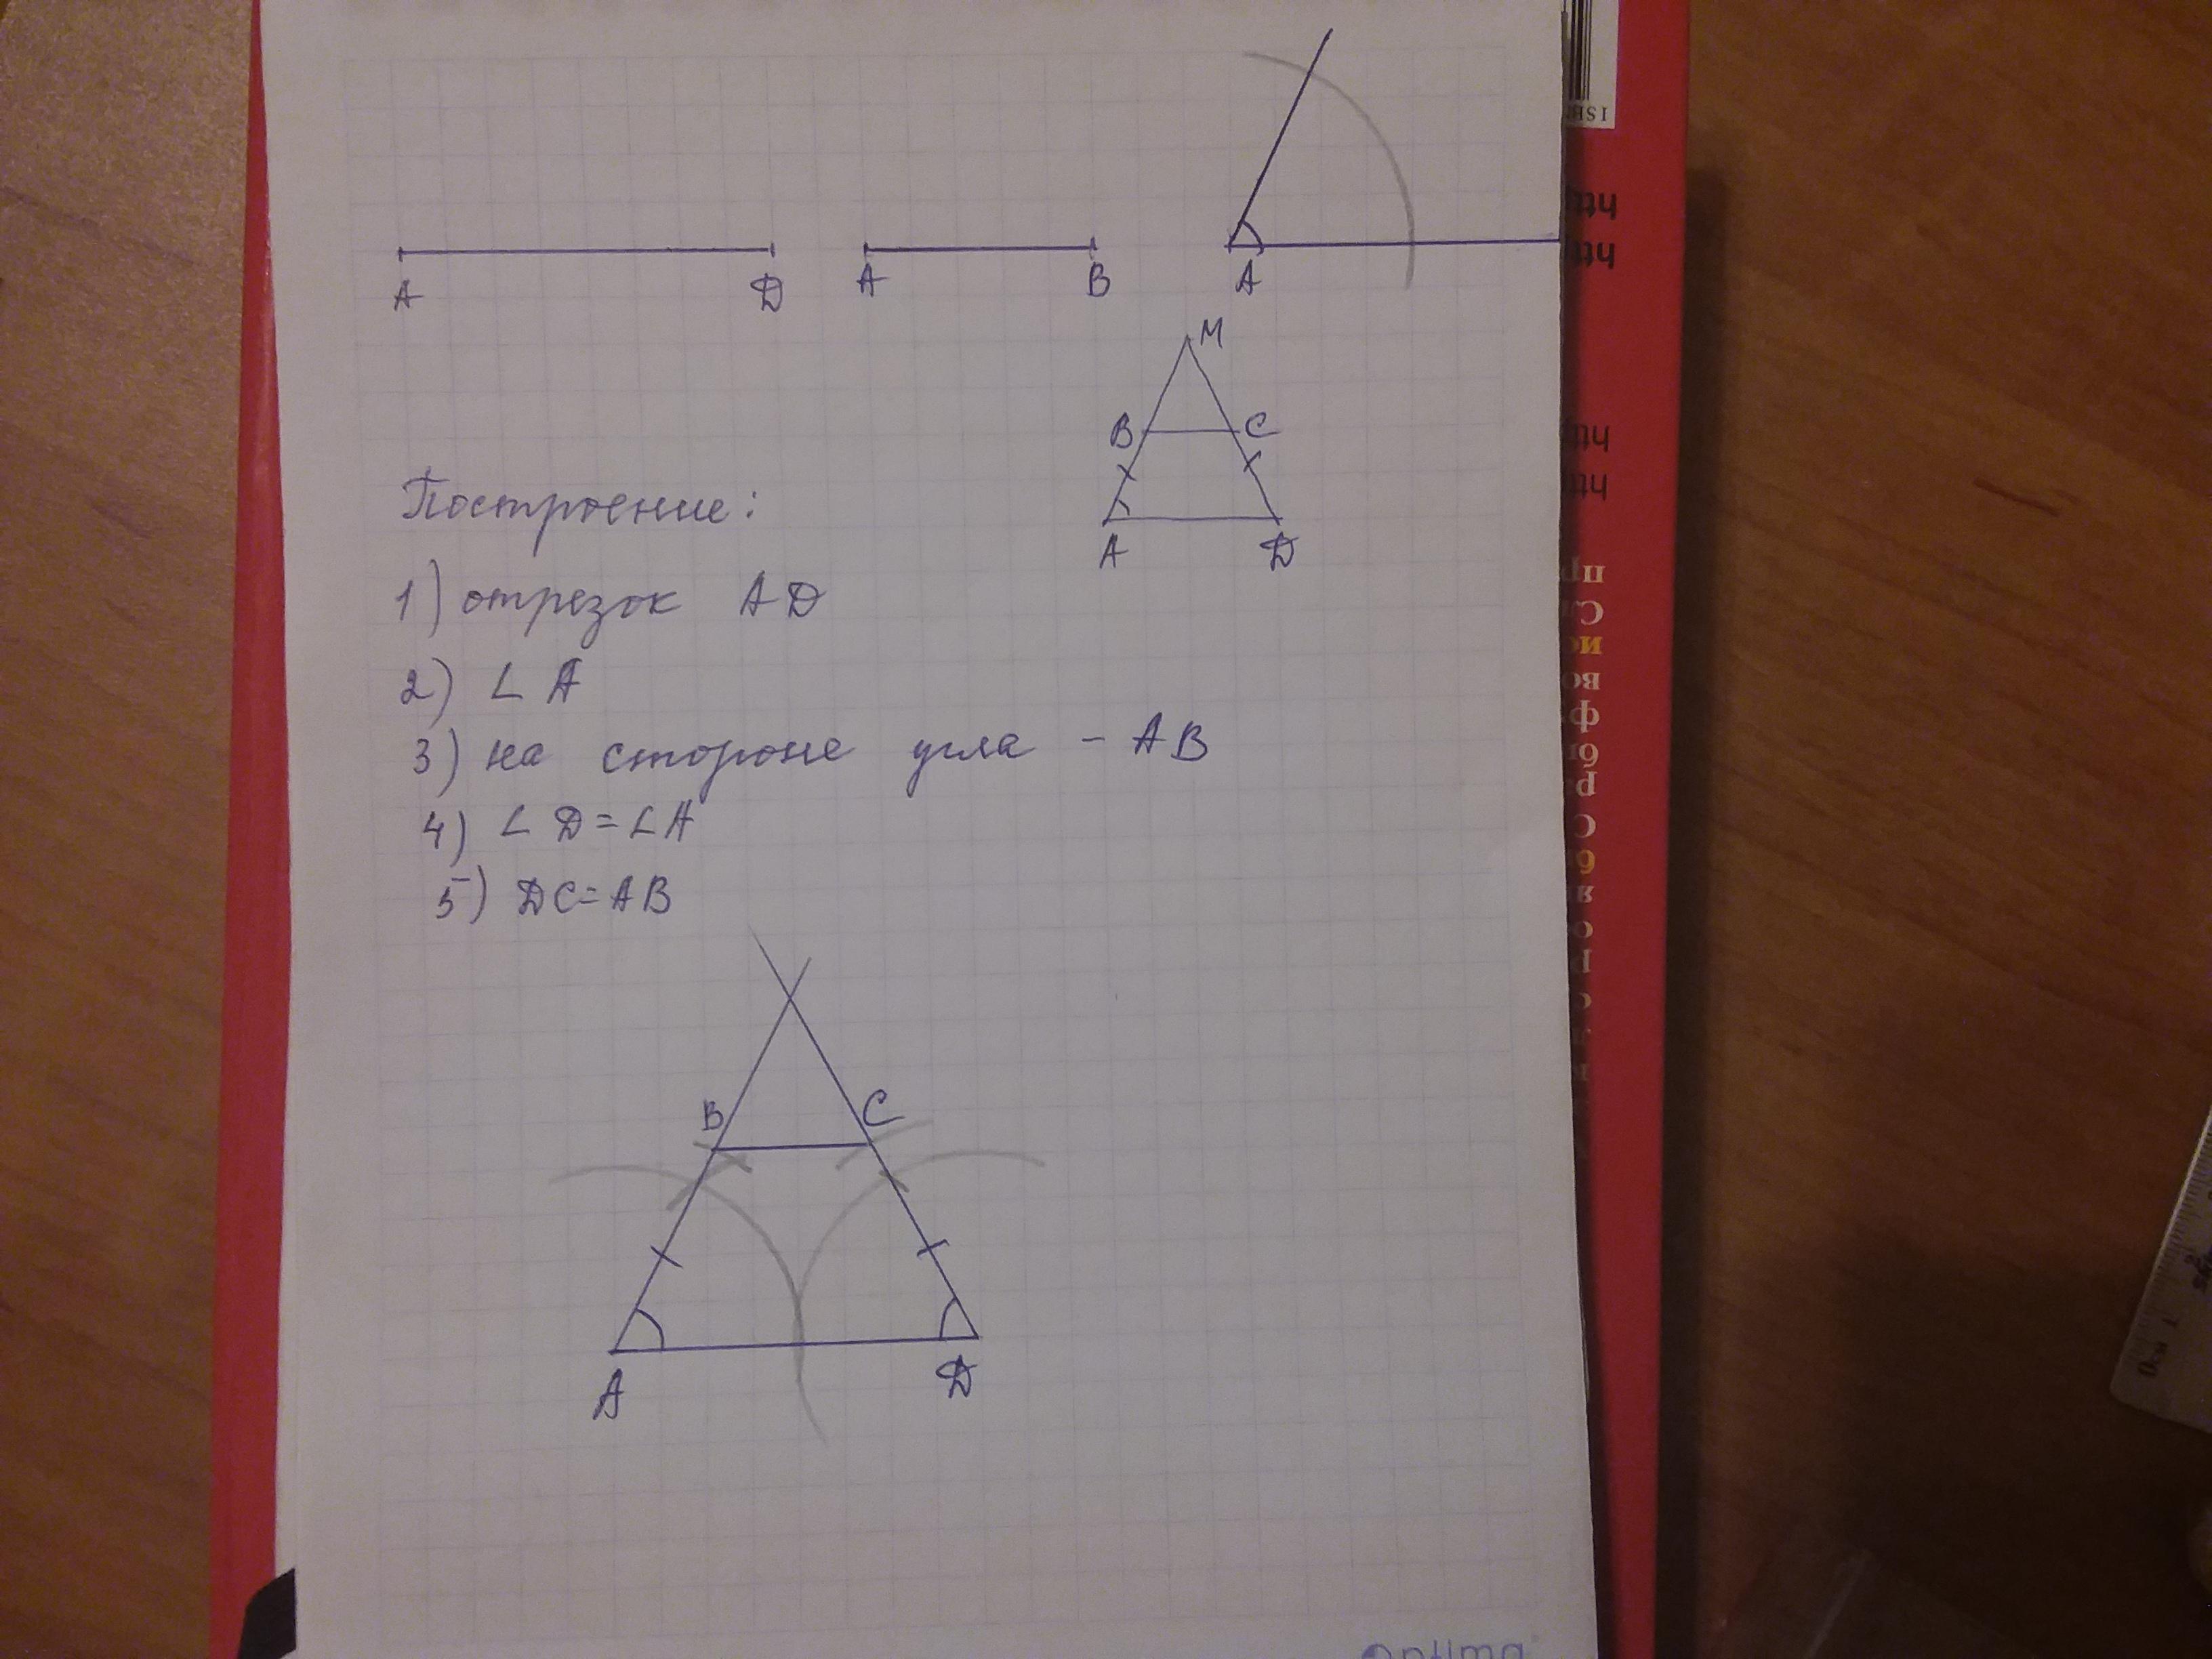 A D A B A
M
B C
A D
Построение:
1) отрезок AD
2) ∟ A
3) на стороне угла - AB
4) ∟ D = ∟ A
5) DC = AB
B C
A D
Optima
0см 1